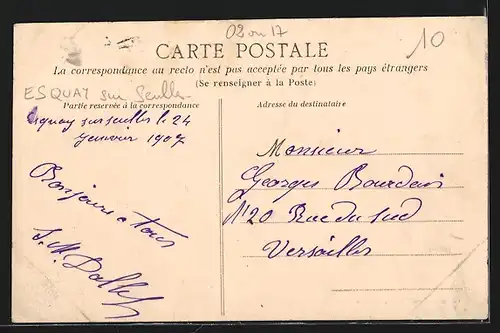 02 ou 17
10
CARTE POSTALE
La correspondance au recto n'est pas acceptée par tous les pays étrangers
(Se renseigner à la Poste)
ESQUAY sur Seulles
Partie reservée à la correspondance
Esquay sur seulles le 24
Janvier 1907
Bonjours a tous
Adresse du destinataire
Monsieur
Georges Bourdais
N 20 Rue du Sud
Versailles